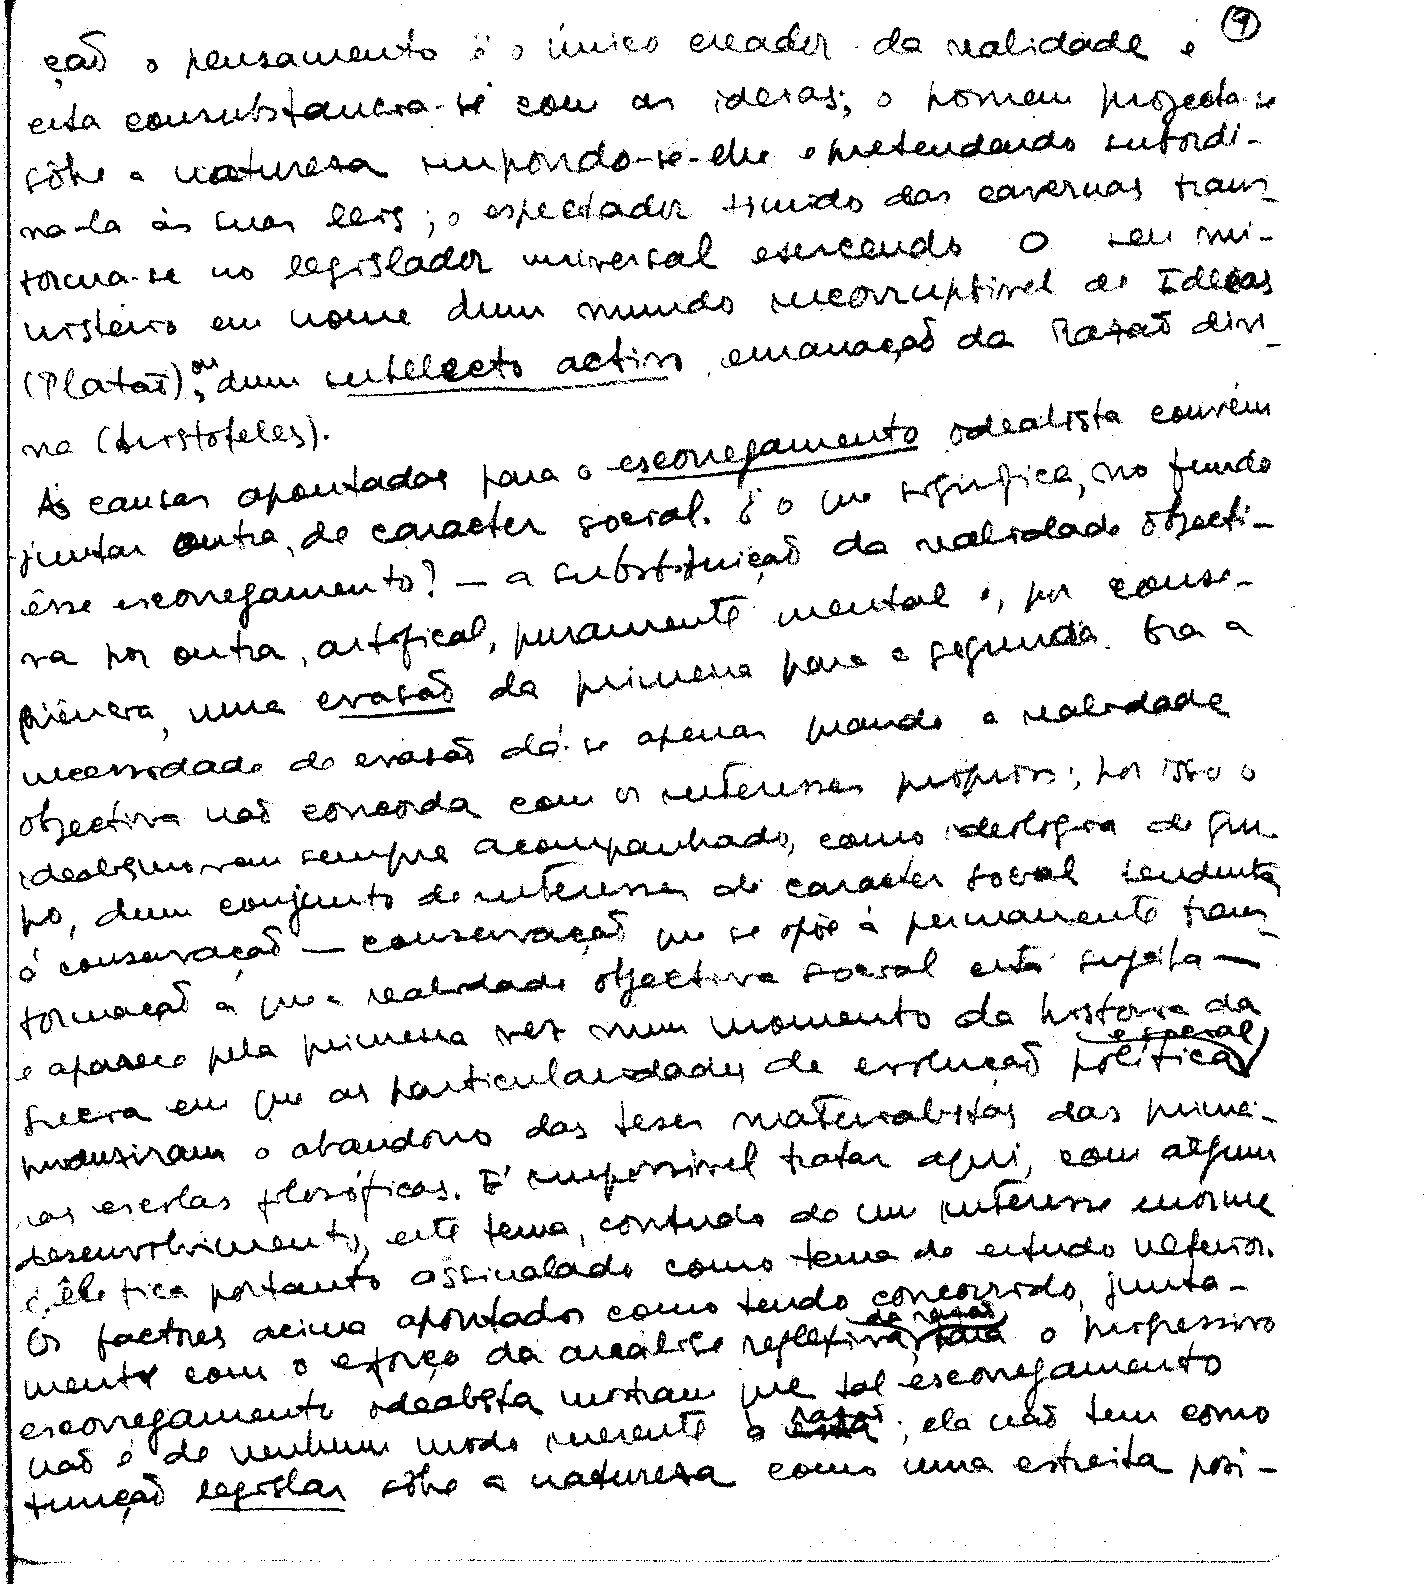 9
ção o pensamento é o único creador da realidade e
esta consubstancia-se com as ideias; o homem projecta-se
sôbre a naturesa impondo-se-lhe e pretendendo subordi-
na-la às suas leis; o espectador tímido das cavernas trans-
forma-se no legislador universal exercendo o seu mi-
nistério em nome dum mundo incorruptível de Ideias
(Platão), ou dum intelecto activo, emanação da Razão divi-
na (Aristoteles).
Às causas apontadas para o escorregamento idealista convém
juntar outra, de caracter social. É o que significa, no fundo
êsse escorregamento? — a substituição da realidade objecti-
va por outra, artifical, puramente mental e, por conse-
quência, uma evasão da primeira para a segunda. Ora a
necessidade de evasão dá-se apenas quando a realidade
objectiva não concorda com os interesses próprios; por isso o
idealismo vem sempre acompanhado, como ideologia de gru-
po, dum conjunto de interesses de caracter social tendente
á conservação — conservação que se opõe á permanente trans-
formação a que a realidade objectiva social está sujeita —
e aparece pela primeira vez num momento da historia da
Grecia em que as particularidades de evolução política especial
produziram o abandono das teses materialistas das primei-
ras escolas filosóficas. É impossivel tratar aqui, com algum
desenvolvimento, este tema, contudo de um interesse enorme
e êle fica portanto assinalado como tema de estudo ulterior.
Os factores acima apontados como tendo concorrido, junta-
mente com o esforço da análise reflexiva da razão, para o progressivo
escorregamento idealista mostram que tal escorregamento
não é de nenhum modo inerente à razão; ela não tem como
função legislar sôbre a naturesa como uma estreita posi-